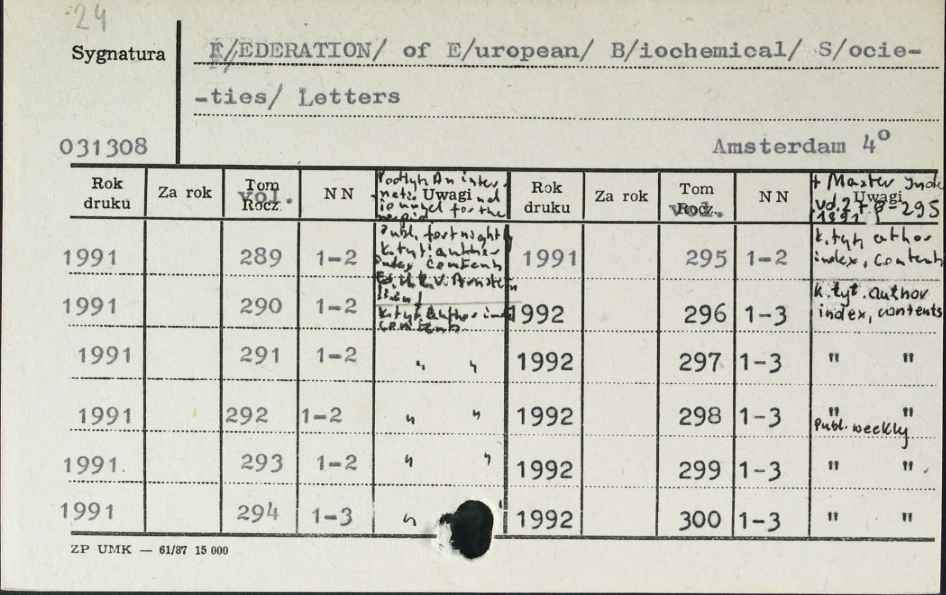 24
Sygnatura F/EDERATION/ of E/uropean/ B/iochemical/ S/ocie-
-ties/ Letters
031308 Amsterdam 4º
Rok druku Za rok Tom Rocz. vol. NN Uwagi Rok druku Za rok Tom Rocz. vol. NN Uwagi
Podtyt. An inter- for the + Master
vol. 295
1991 289 1-2 publ. fortnightly k. tyt. author index contents 1991 295 1-2 k. tyt. author index, contents
1991 290 1-2 k. tyt. author contents 1992 296 1-3 k. tyt. author index, contents
1991 291 1-2 " " 1992 297 1-3 " "
1991 292 1-2 " " 1992 298 1-3 " "
publ. weekly
1991. 293 1-2 " " 1992 299 1-3 " "
1991 294 1-3 " 1992 300 1-3 " "
ZP UMK — 61/87 15 000